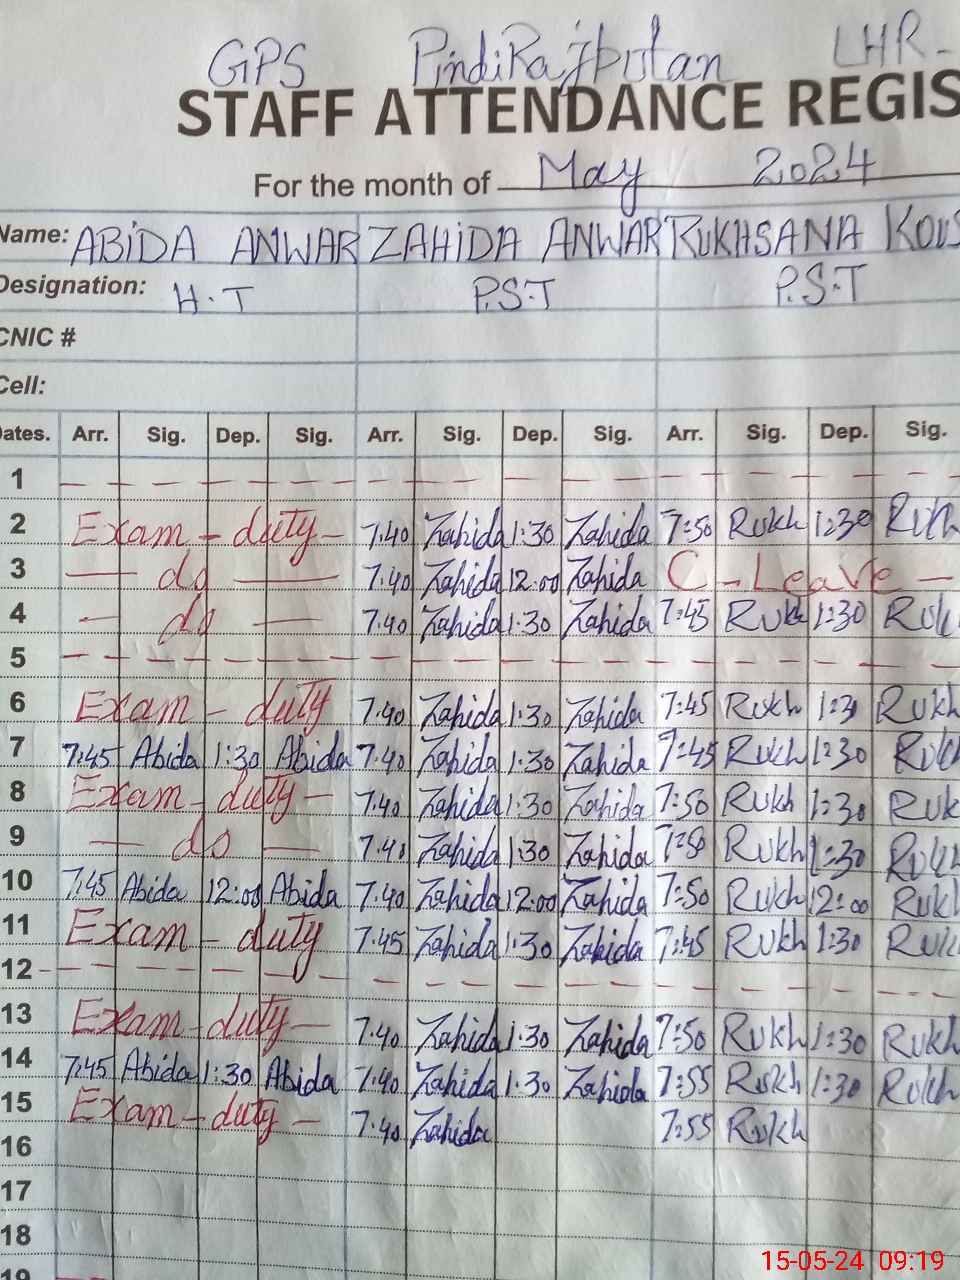 GPS PindiRajbutan LHR-
STAFF ATTENDANCE REGIS
For the month of May 2024
Name: ABiDA ANWAR ZAHiDA ANWAR RUKHSANA KOUS
Designation: H.T P.S.T P.S.T
CNIC #
Cell:
ates. Arr. Sig. Dep. Sig. Arr. Sig. Dep. Sig. Arr. Sig. Dep. Sig.
1
2 Exam - duty - 7.40 Zahida 1:30 Zahida 7:50 Rukh 1:30 Rukh
3 — do — 7.40 Zahida 12:00 Zahida C - Leave -
4 — do — 7.40 Zahida 1:30 Zahida 7:45 Rukh 1:30 Ruk
5
6 Exam - duty 7.40 Zahida 1:30 Zahida 7:45 Rukh 1:30 Rukh
7 7:45 Abida 1:30 Abida 7.40 Zahida 1:30 Zahida 7:45 Rukh 1:30 Ruk
8 Exam - duty - 7.40 Zahida 1:30 Zahida 7:50 Rukh 1:30 Ruk
9 — do — 7.40 Zahida 1:30 Zahida 7:50 Rukh 1:30 Rukh
10 7:45 Abida 12:00 Abida 7.40 Zahida 12:00 Zahida 7:50 Rukh 12:00 Rukh
11 Exam - duty 7.45 Zahida 1:30 Zahida 7:45 Rukh 1:30 Rukh
12
13 Exam - duty - 7.40 Zahida 1:30 Zahida 7:50 Rukh 1:30 Rukh
14 7:45 Abida 1:30 Abida 7.40 Zahida 1:30 Zahida 7:55 Rukh 1:30 Rukh
15 Exam - duty - 7.40 Zahida 7:55 Rukh
16
17
18
19
15-05-24 09:19